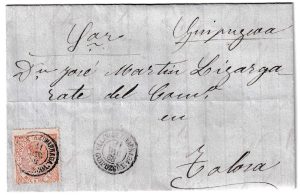 Por Guipuzcoa
Dn José Martin Lizarga
rate del Comº
en
Tolosa